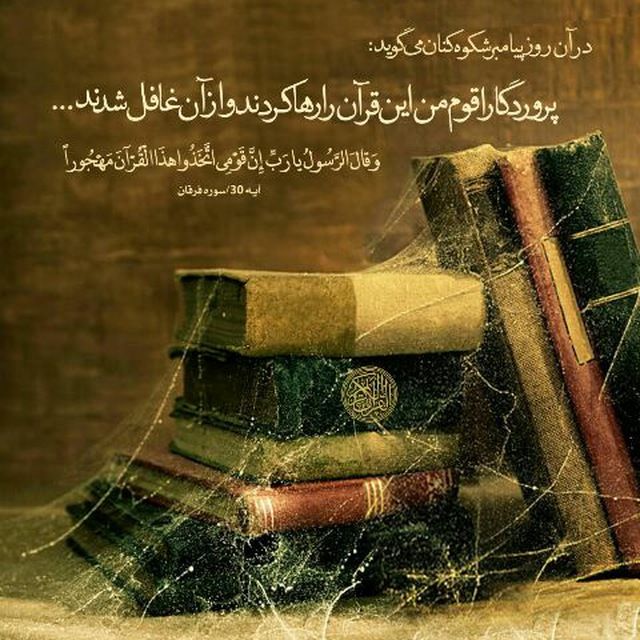 در آن روز پیامبر شکوه کنان می‌گوید:
پروردگارا قوم من این قرآن را رها کردند و از آن غافل شدند...
وَ قالَ الرَّسُولُ یا رَبِّ إِنَّ قَوْمِی اتَّخَذُوا هذَا الْقُرْآنَ مَهْجُوراً
آیه 30/سوره فرقان